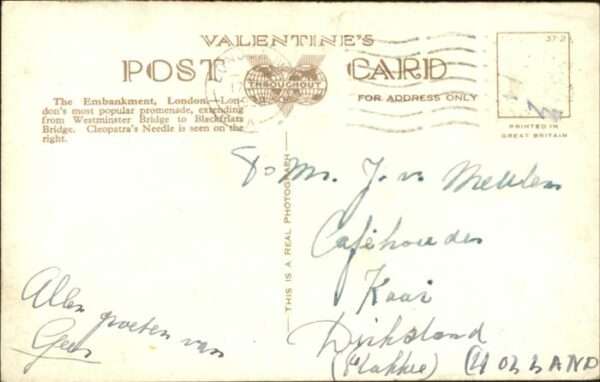 VALENTINE'S
POST CARD
THROUGHOUT
FOR ADDRESS ONLY
37-2
PRINTED IN
GREAT BRITAIN
The Embankment, London.—Lon-
don's most popular promenade, extending
from Westminster Bridge to Blackfriars
Bridge. Cleopatra's Needle is seen on the
right.
THIS IS A REAL PHOTOGRAPH
To Mr. J. v. Meulen
Caféhouder
Kaai
Dirksland
(Flakkee) (HOLLAND
Allen groeten van
Geer